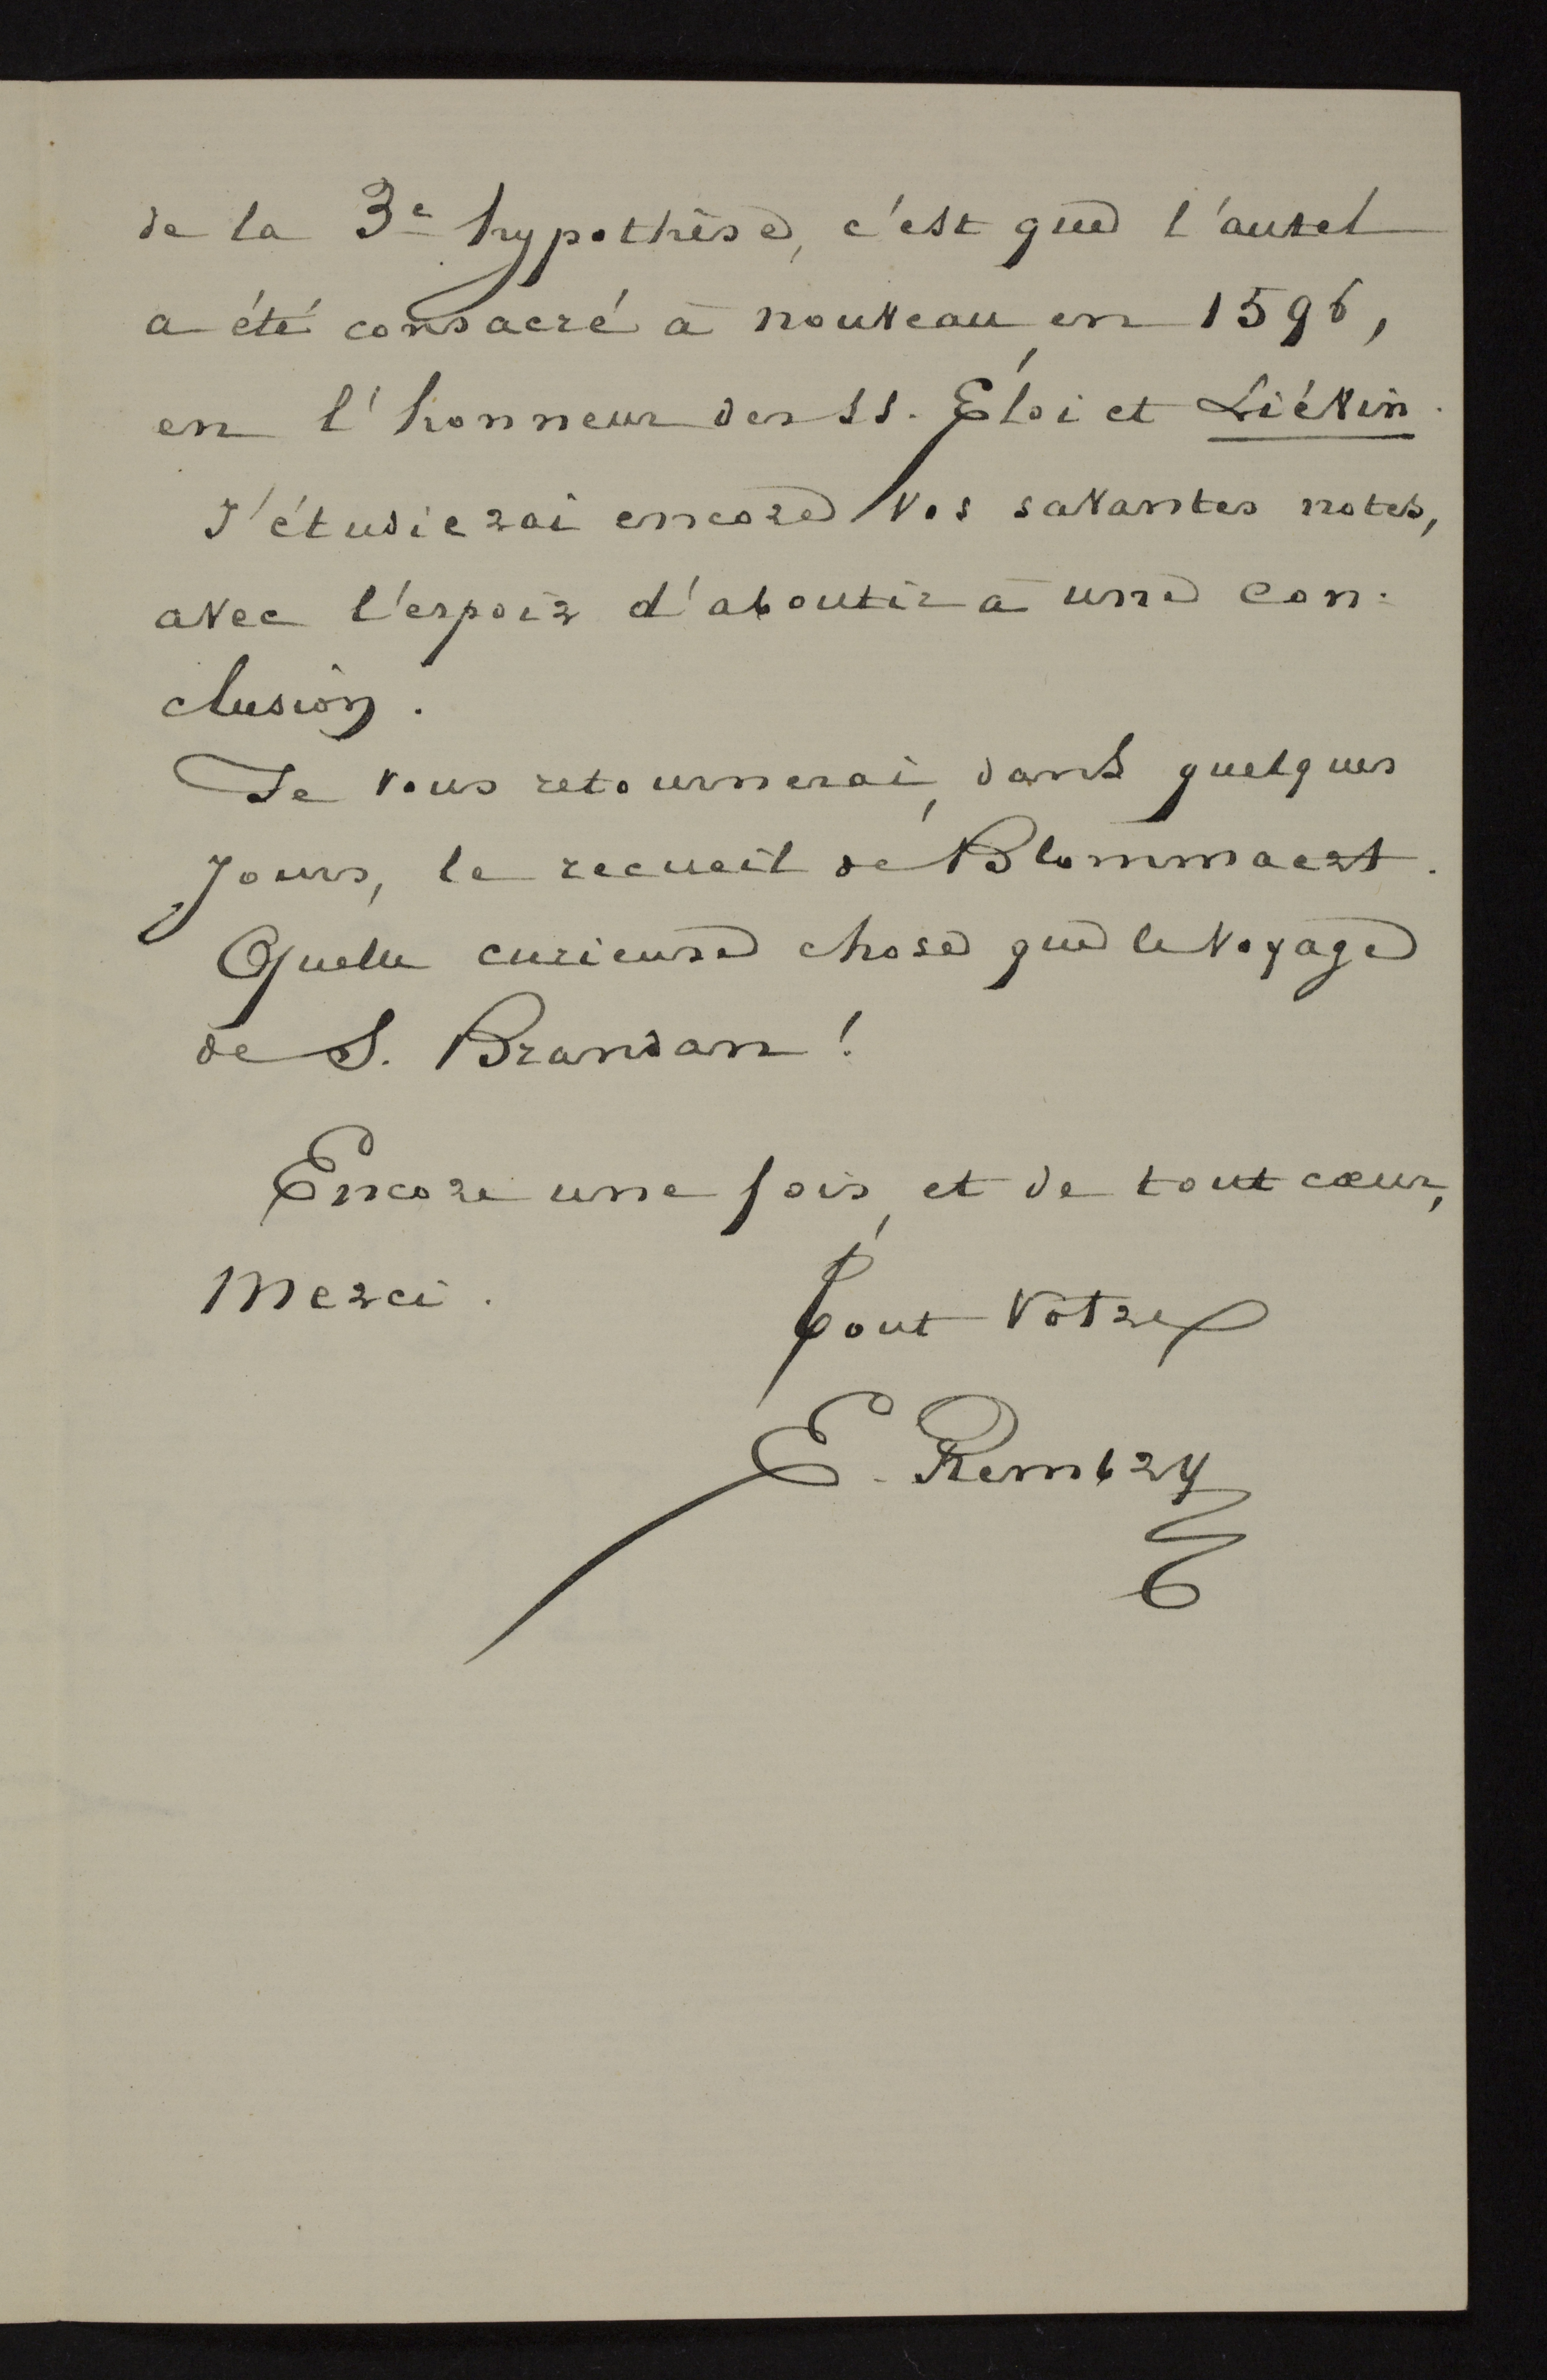 de la 3e hypothèse, c'est que l'autel
a été consacré à nouveau, en 1596,
en l'honneur des SS. Éloi et Liévin.
J'étudierai encore vos savantes notes,
avec l'espoir d'aboutir à une con-
clusion.
Je vous retournerai, dans quelques
jours, le recueil de Blommaert.
Quelle curieuse chose que le voyage
de S. Brandan !
Encore une fois, et de tout cœur,
merci.
Tout vôtre
E. Rembry